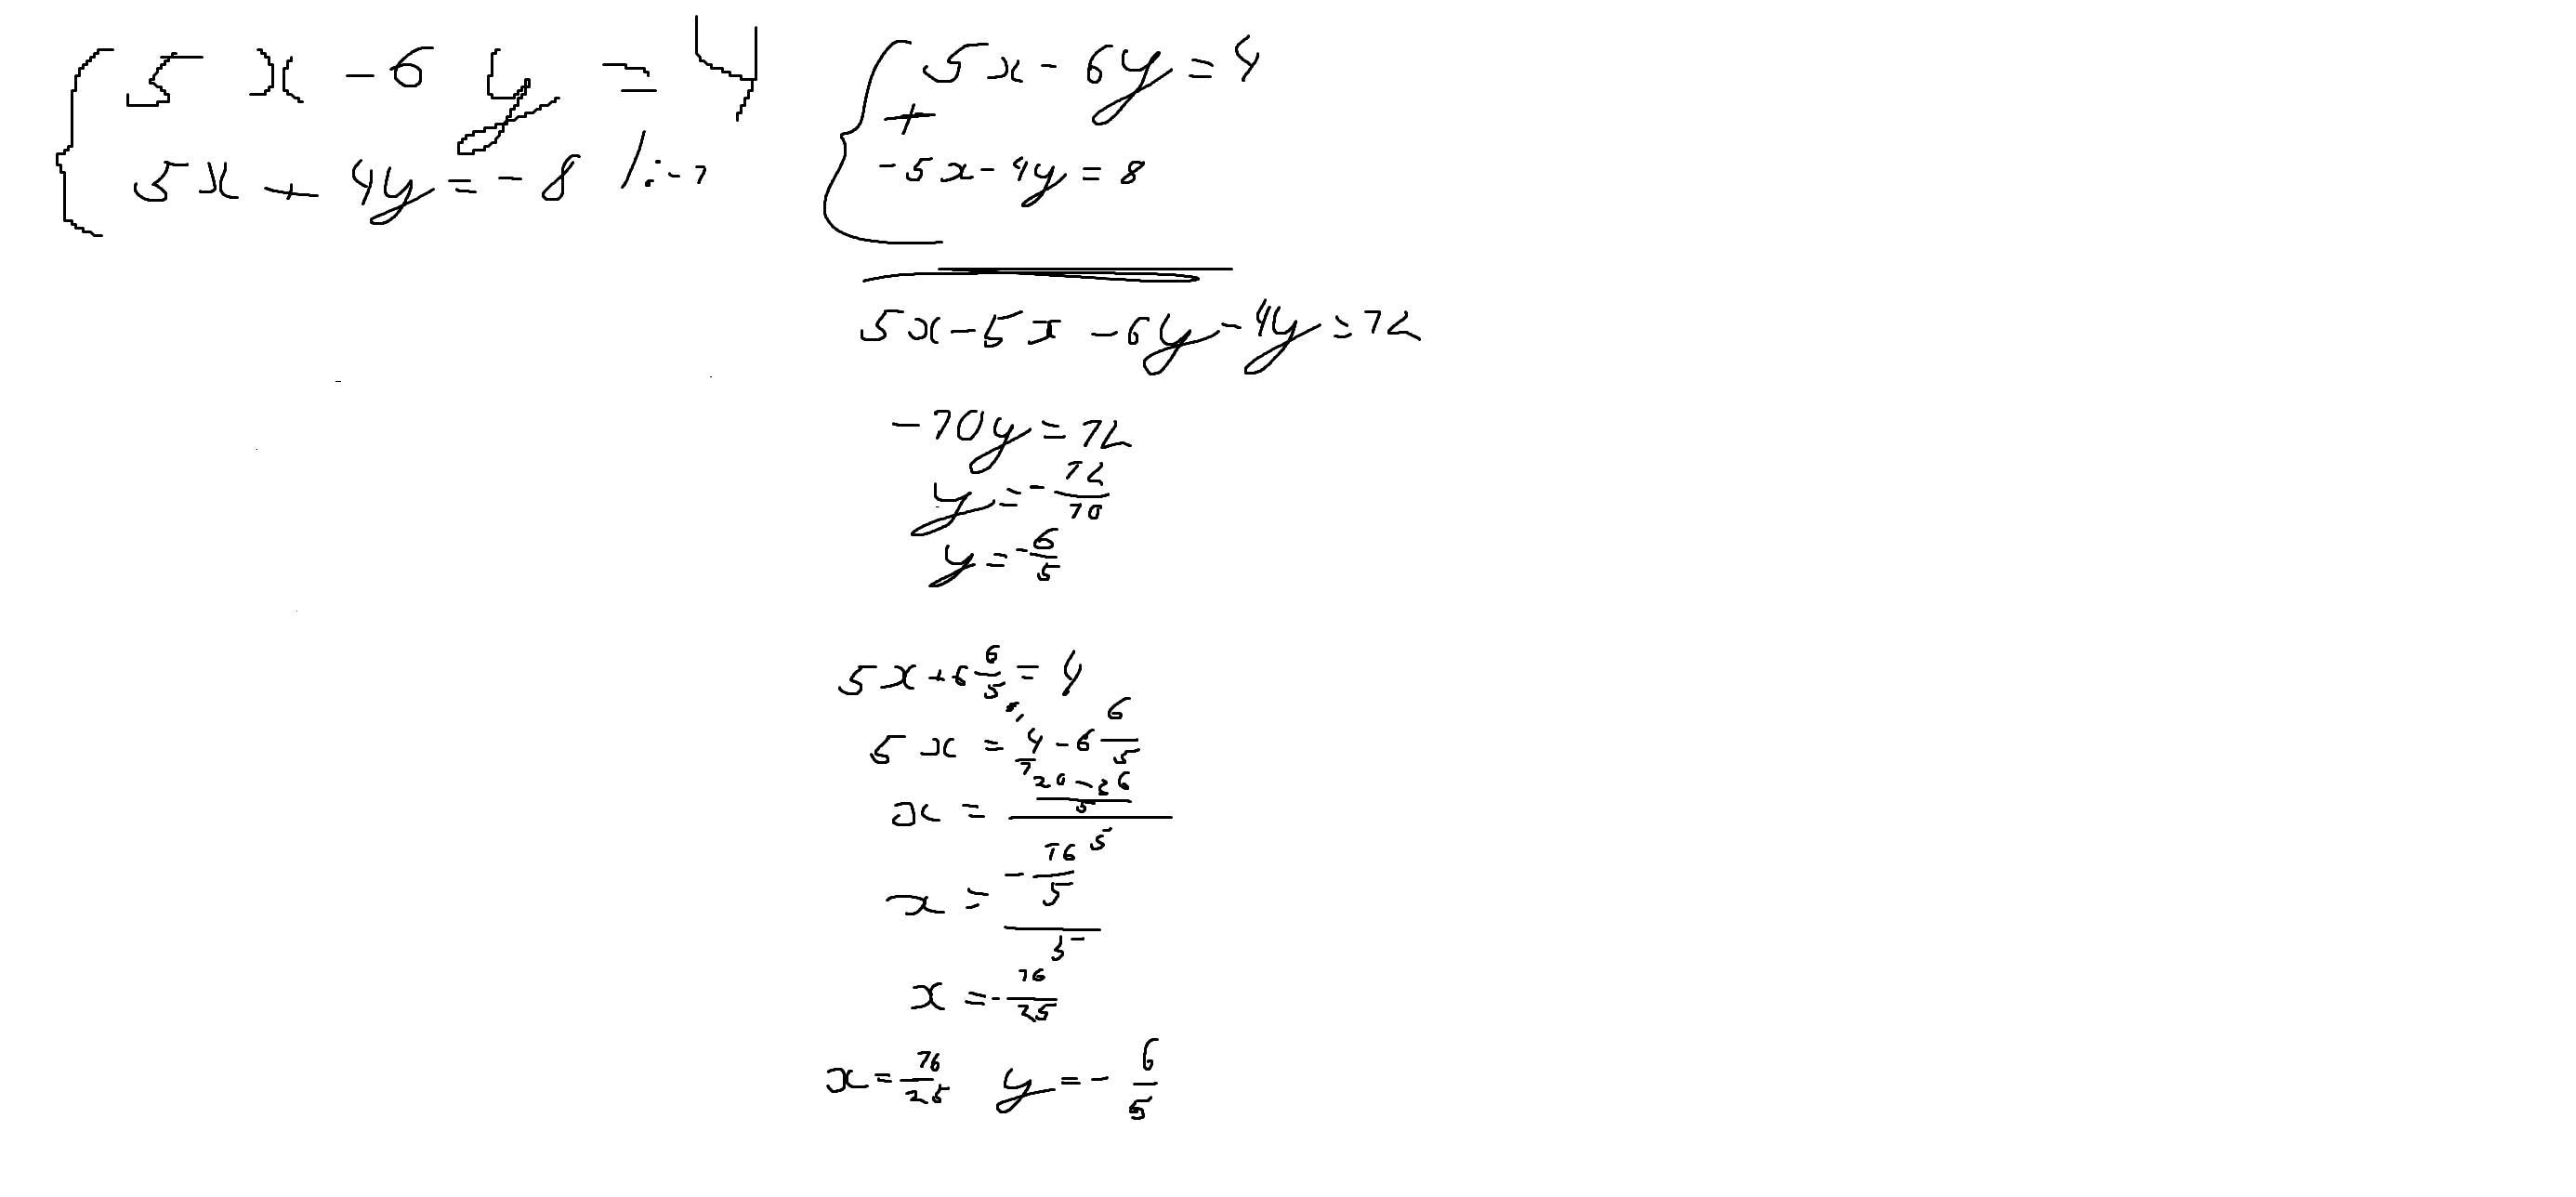 5x - 6y = 4
5x + 4y = -8 /:-1
5x - 6y = 4
+
-5x - 4y = 8
5x - 5x - 6y - 4y = 12
-10y = 12
y = -12/10
y = -6/5
5x + 6 6/5 = 4
5x = 4/1 - 6 6/5
x = ((20 - 36)/5)/5
x = (-16/5)/5
x = -16/25
x = 16/25 y = -6/5